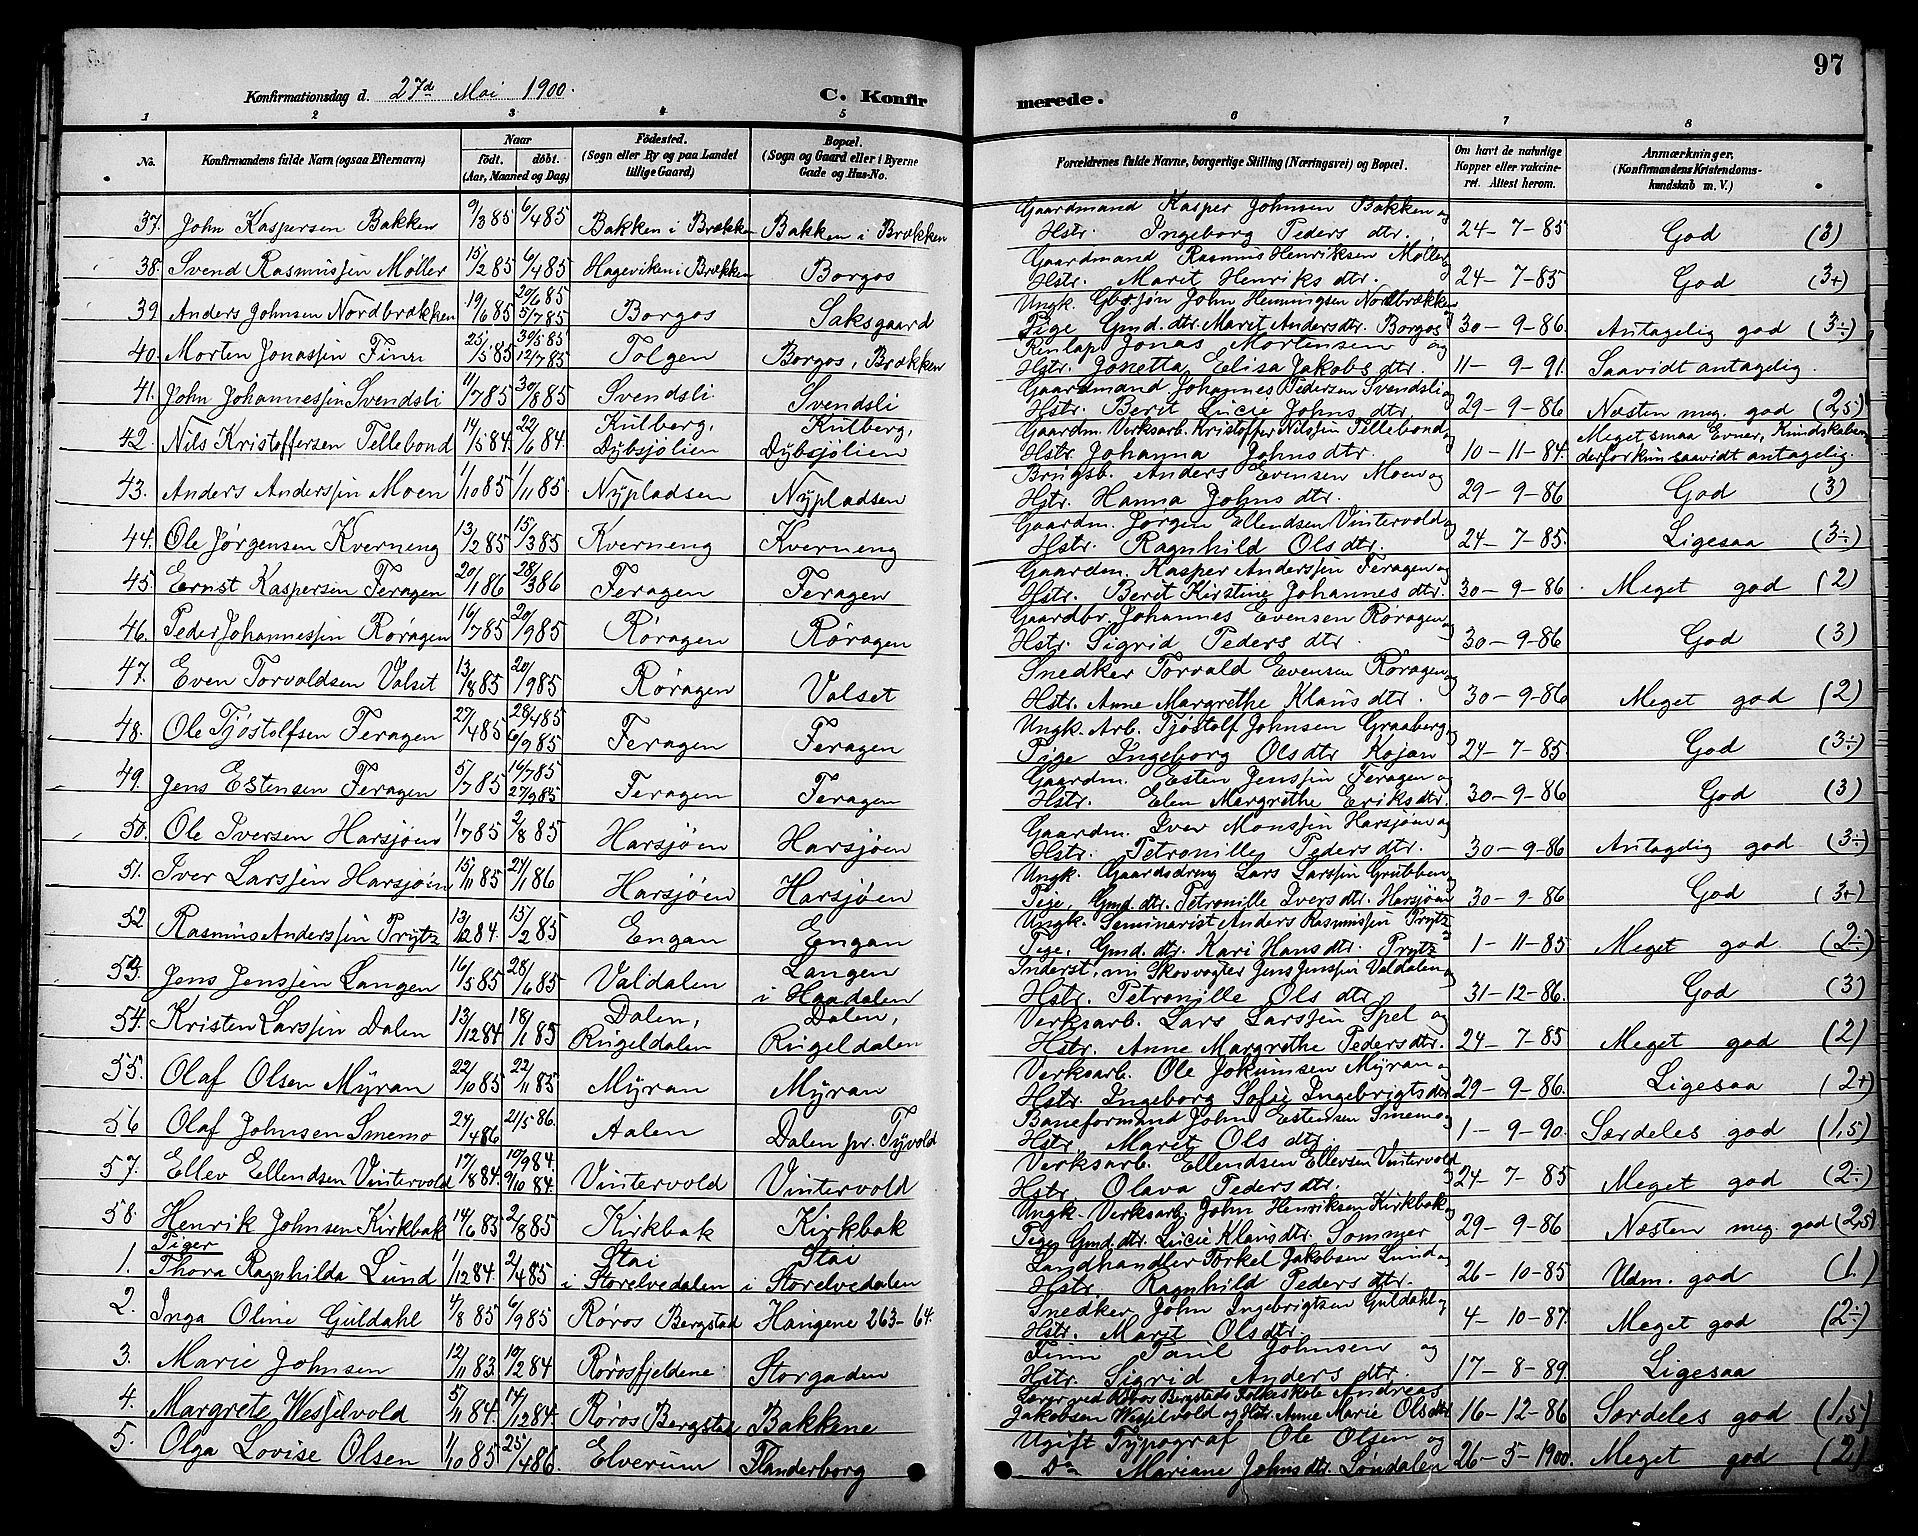 97
Konfirmationsdag d. 27d Mai 1900.
C. Konfirmerede.
1 2 3 4 5 6 7 8
No. Konfirmandens fulde Navn (ogsaa Efternavn) Naar født. døbt. (Aar, Maaned og Dag) Födested. (Sogn eller By og paa Landet tillige Gaard) Bopæl. (Sogn og Gaard eller i Byerne Gade og Hus-No. Forældrenes fulde Navne, borgerlige Stilling (Næringsvei) og Bopæl. Om havt de naturlige Kopper eller vakcineret. Attest herom. Anmærkninger. (Konfirmandens Kristendomskundskab m. V.)
37. John Kaspersen Bakken 9/3 85 6/4 85 Bakken i Brækken Bakken i Brækken Gaardmand Kasper Johnsen Bakken og Hstr. Ingeborg Peders dtr. 24-7-85 God (3)
38. Svend Rasmussen Møller 15/2 85 6/4 85 Hageviken i Brækken Borgos Gaardmand Rasmus Henriksen Møller og Hstr. Marit Henriks dtr. 24-7-85 God (3+)
39 Anders Johnsen Nordbrækken 19/6 85 29/6 85 5/7 85 Borgos Saksgaard Ungk. Gbrsøn John Henningsen Nordbrækken Pige Gmd. dtr. Marit Anders dtr. Borgos 30-9-86 Antagelig god (3÷)
40. Morten Jonassen Finne 25/5 85 30/5 85 12/7 85 Tolgen Borgos i Brækken Jonas Mortensen og Hstr. Jonetta Elisa Jakobs dtr. 11-9-91. Saavidt antagelig.
41. John Johannessen Svendsli 11/7 85 30/8 85 Svendsli Svendsli Gaardmand Johannes Pedersen Svendsli og Hstr. Berit Lucie Johns dtr. 29-9-86 Næsten meg. god (2,5)
42. Nils Kristoffersen Tellebond 14/5 84. 22/6 84. Kulberg, Dybsjølien Kulberg, Dybsjølien Gaardm. Verksarb. Kristoffer Nilssen Tellebond og Hstr. Johanna Johns dtr. 10-11-84. Meget smaa Evner, Kundskaben derfor kun saavidt antagelig.
43. Anders Anderssen Moen 1/10 85 1/11 85. Nypladsen Nypladsen Brugsb. Anders Evensen Moen og Hstr. Hanna Johns dtr. 29-9-86 God (3)
44. Ole Jørgensen Kverneng 13/2 85 15/3 85 Kverneng Kverneng Gaardm. Jørgen Ellendsen Vintervold og Hstr. Ragnhild Ols dtr. 24-7-85. Ligesaa (3÷)
45. Ernst Kaspersen Feragen 20/1 86 28/3 86 Feragen Feragen Gaardm. Kasper Anderssen Feragen og Hstr. Berit Kirstine Johannes dtr. 30-9-86. Meget god (2)
46. Peder Johannessen Røragen 16/7 85 20/9 85 Røragen Røragen Gaardbr. Johannes Evensen Røragen og Hstr. Sigrid Peders dtr. 30-9-86 God (3)
47. Even Torvaldsen Valset 13/8 85 20/9 85 Røragen Valset Snedker Torvald Evensen Røragen og Hstr. Anne Margrethe Klaus dtr. 30-9-86 Meget god (2)
48. Ole Tjøstolfsen Feragen 27/4 85 28/4 85 6/9 85 Feragen Feragen Ungk. Arb. Tjøstolf Johnsen Graaberg, Pige Ingeborg Ols dtr Kojan 24-7-85. God (3÷)
49. Jens Estensen Feragen 5/7 85 16/7 85 27/9 85 Feragen Feragen Gaardm. Esten Jenssen Feragen og Hstr. Elen Margrethe Eriks dtr. 30-9-86 God (3)
50. Ole Iversen Harsjøen 1/7 85 2/8 85 Harsjøen Harsjøen Gaardm. Iver Monssen Harsjøen og Hstr. Petronille Peders dtr. 30-9-86 Antagelig god (3÷)
51. Iver Larssen Harsjøen 15/11 85 24/1 86 Harsjøen Harsjøen Ungk. Gaardsdreng Lars Larssen Grubben, Pige, Gmd. dtr. Petronille Ivers dtr. Harsjøen 30-9-86 God (3+)
52 Rasmus Anderssen Prytz 13/12 84. 15/2 85 Engan Engan Ungk. Seminarist Anders Rasmussen Prytz Pige, Gmd. dtr. Kari Hans dtr. Prytz 1-11-85 Meget god. (2÷)
53. Jens Jenssen Langen 16/5 85 28/6 85 Valdalen Langen i Haadalen Inderst, nu Skovvogter Jens Jenssen Valdalen og Hstr. Petronille Ols dtr. 31-12-86. God (3)
54. Kristen Larssen Dalen 13/12 84 18/1 85 Dalen, Rugeldalen Dalen, Rugeldalen Verksarb. Lars Larssen Spel og Hstr. Anne Margrethe Peders dtr. 24-7-85 Meget god (2)
55. Olaf Olsen Myran 22/10 85 22/11 85 Myran Myran Verksarb. Ole Jokumsen Myran og Hstr. Ingeborg Sofie Ingebrigts dtr 29-9-86. Ligesaa (2+)
56 Olaf Johnsen Smemo 24/4 86 21/5 86. Aalen Dalen pr. Tyvold Baneformand John Estensen Smemo og Hstr. Marit Ols dtr. 1-9-90. Særdeles god (1,5)
57. Ellev Ellendsen Vintervold 17/8 84. 10/9 84. 9/10 84. Vintervold Vintervold Verksarb. Ellendsen Ellevsen Vintervold Hstr. Olava Peders dtr. 24-7-85 Meget god (2÷)
58. Henrik Johnsen Kirkbak 14/6 85 2/8 85 Kirkbak Kirkbak Ungk. Verksarb. John Henriksen Kirkbak og Pige Gmd. dtr. Lucie Klaus dtr. Sommer 29-9-86 Næsten meg. god (2,5)
Piger
1. Thora Ragnhilda Lund 1/12 84. 2/4 85 Stai i Storelvedalen Stai i Storelvedalen Landhandler Torkel Jakobsen Lund og Hstr. Ragnhild Peders dtr. 26-10-85 Udm. god (1.)
2. Inga Oline Guldahl 4/8 85 6/9 85 Røros Bergstad Haugene 263-64. Snedker John Ingebrigtsen Guldahl og Hstr. Marit Ols dtr. 4-10-87. Meget god (2÷)
3. Marie Johnsen 12/11 83 19/2 84 Rørosfjeldene Storgaden Finn Paul Johnsen og Hstr. Sigrid Anders dtr. 17-8-89. Ligesaa
4. Margrete Wesselvold 5/11 84. 14/12 84. Røros Bergstad Bakkene Lærer ved Røros Bergstads Folkeskole Andreas Jakobsen Wesselvold og Hstr. Anne Marie Ols dtr 16-12-86 Særdeles god (1,5)
5. Olga Lovise Olsen 1/10 85 25/4 86. Elverum Flanderborg Ugift Typograf Ole Olsen og Do Mariane Johns dtr. Løndalen 26-5-1900. Meget god (2)